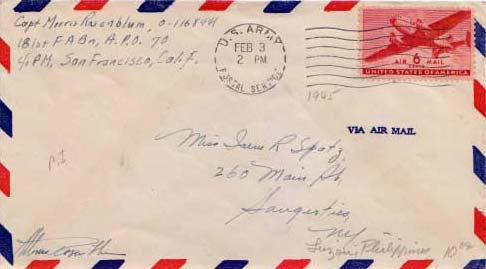 Capt Morris Rosenblum, O-1168944
181st F A Bn, A.P.O. 70
c/o PM, San Francisco, Calif.
U.S. ARMY
FEB 3
2 PM
POSTAL SERVICE
AIR 6 MAIL
CENTS
UNITED STATES OF AMERICA
1945
VIA AIR MAIL
Miss Irene R Spatz,
260 Main St,
Saugerties,
NY
Luzon, Philippines